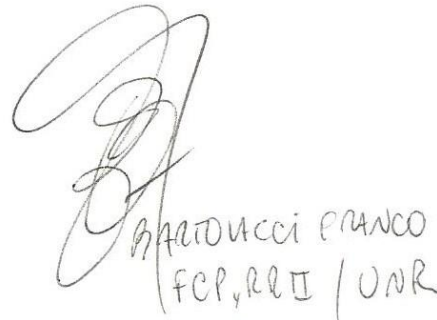 BARTOLACCI FRANCO
FCP y RRII / UNR